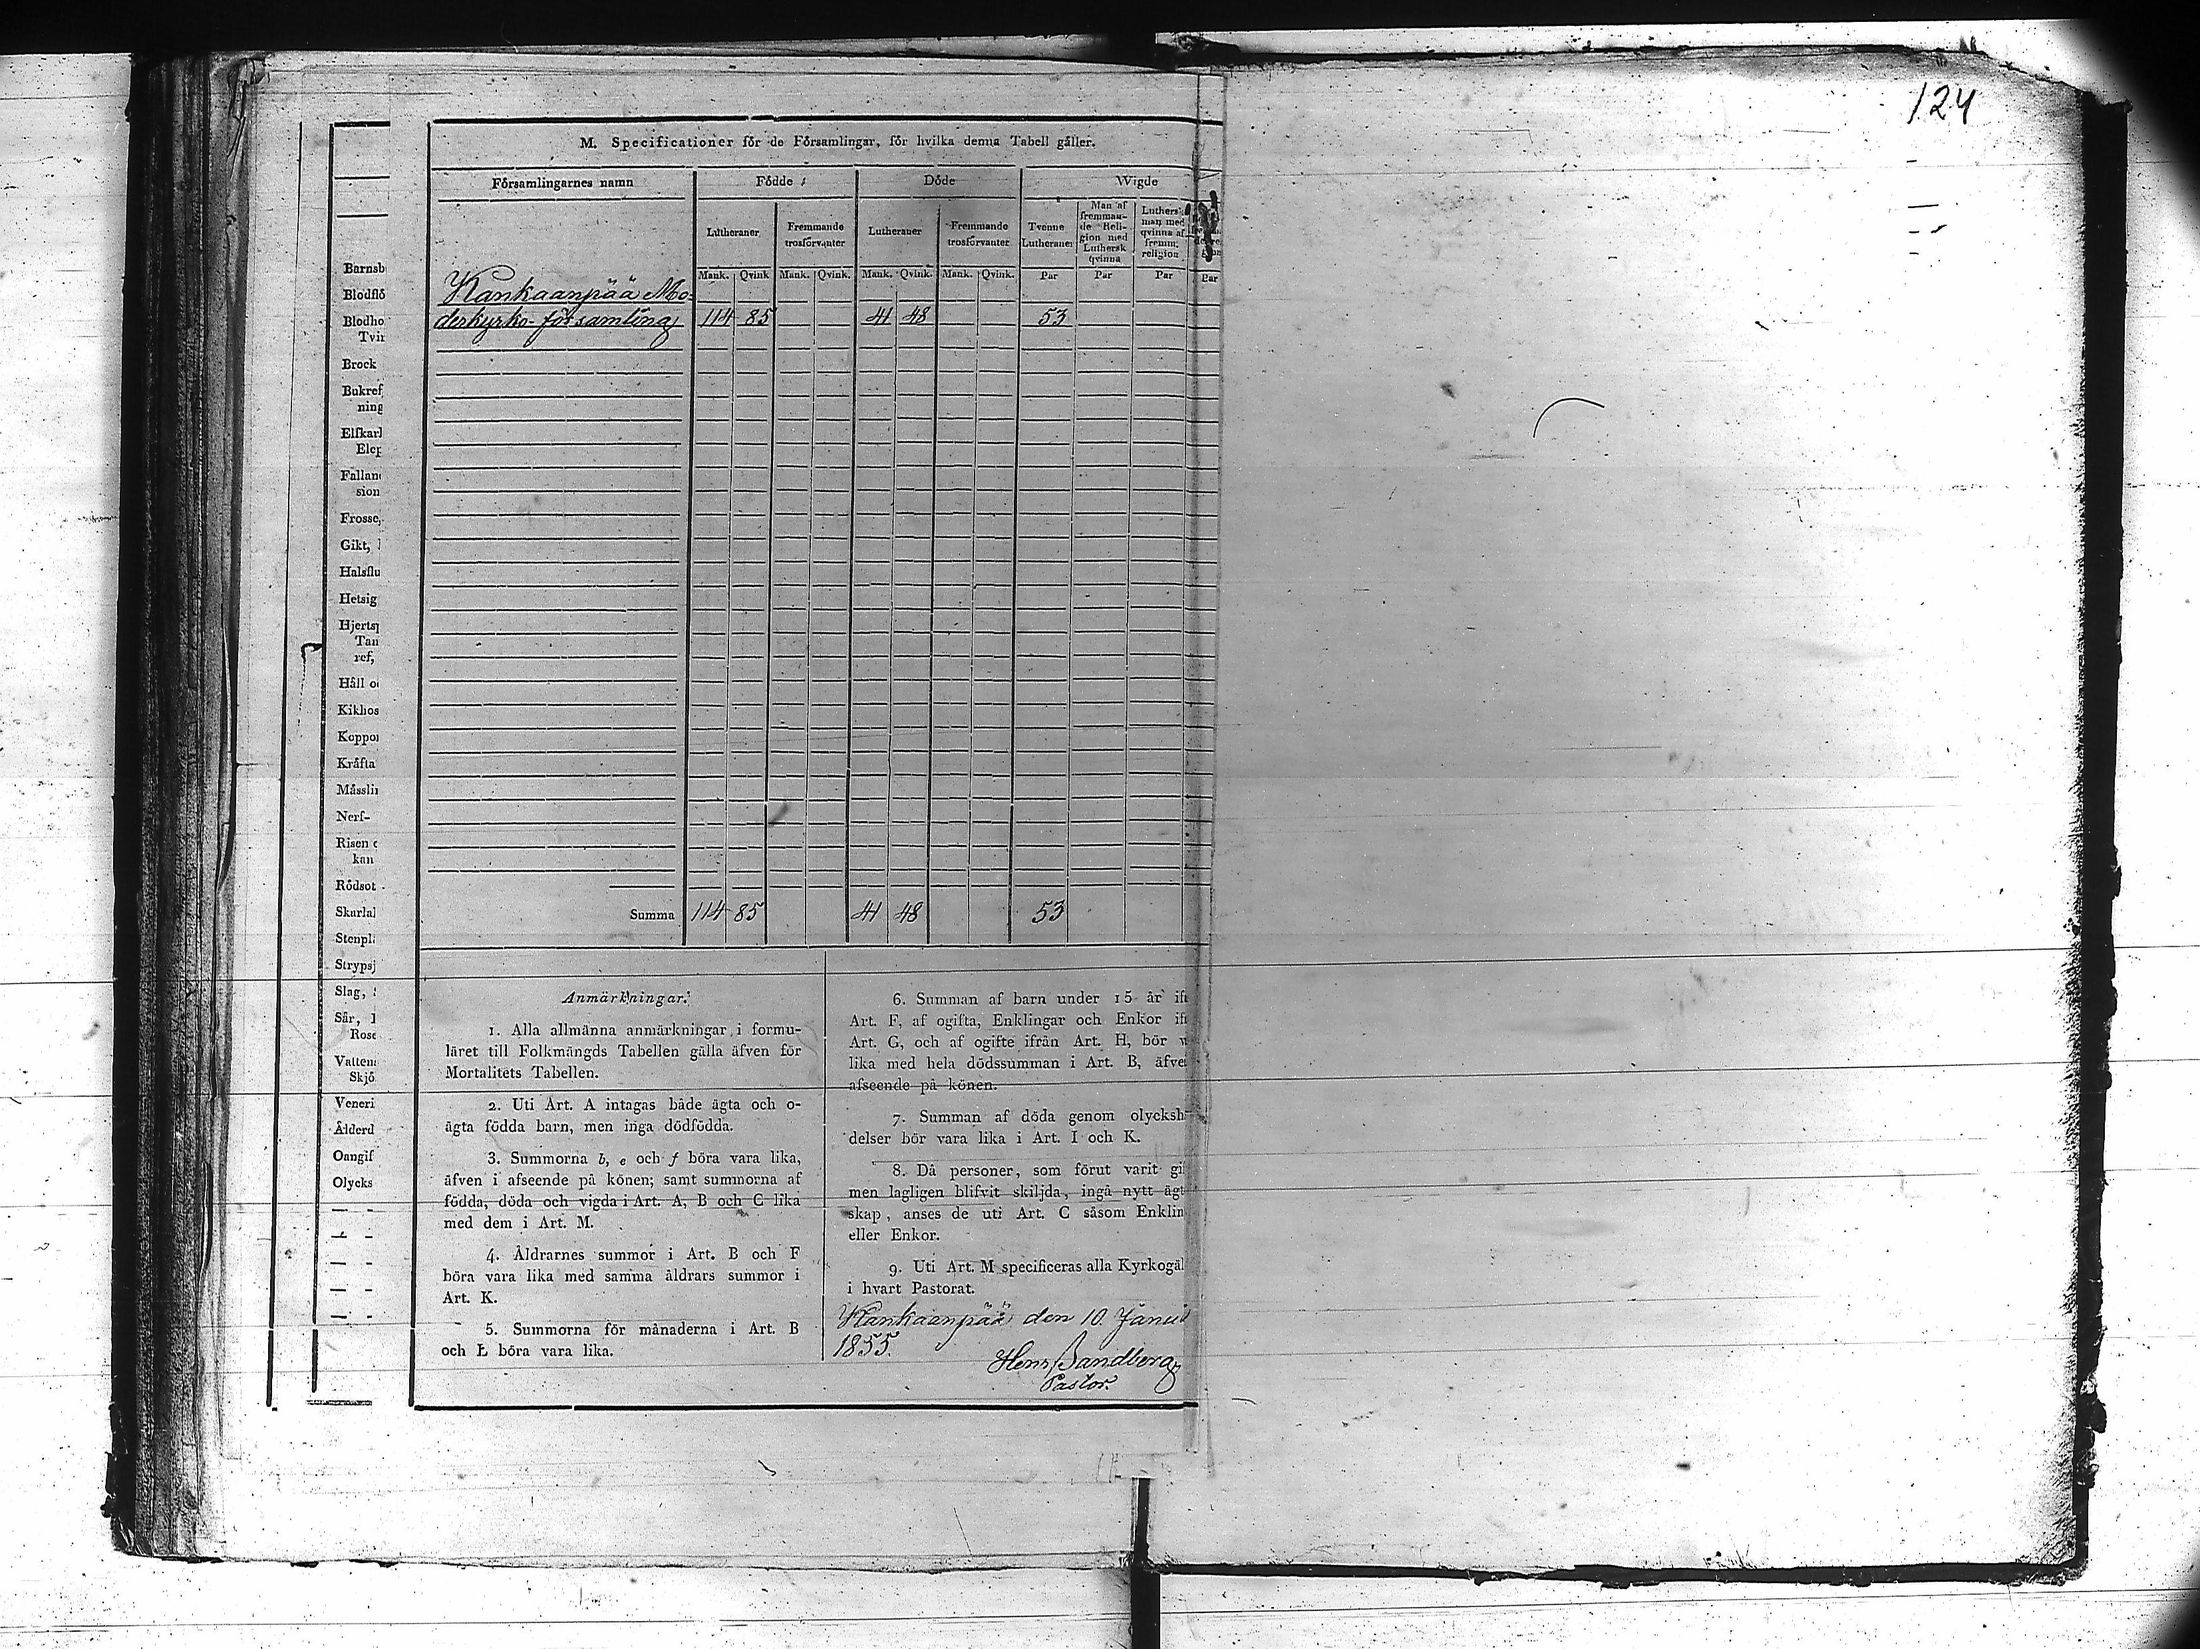 124
M. Specificationer för de Församlingar, för hvilka denna Tabell gäller.
Församlingarnes namn Födde Döde Wigde
Lutheraner Fremmande trosförvanter Lutheraner Fremmande trosförvanter Tvenne Lutheraner Man af fremman-de Reli-gion med Luthersk qvinna Luthersk man med qvinna af fremm. religion
Mank. Qvink. Mank. Qvink. Mank. Qvink. Mank. Qvink. Par Par Par Par
Kankaanpää Mo-
derkyrko-församling 114 85 41 48 53
Summa 114 85 41 48 53
Barnsb
Blodflö
Blodho
Tvin
Brock
Bukref,
ning
Elfkarl
Elep
Falland
sion
Frosse,
Gikt,
Halsflu
Hetsig
Hjertsp
Tan
ref,
Håll o
Kikhos
Koppor
Kräfta
Måsslin
Nerf-
Risen
kan
Rödsot
Skarla
Stenpl
Strypsj
Slag,
Sår,
Rose
Vatten
Skjö
Veneri
Ålderd
Oangif
Olycks
Anmärkningar.
1. Alla allmänna anmärkningar i formu-
läret till Folkmängds Tabellen gälla äfven för
Mortalitets Tabellen.
2. Uti Art. A intagas både ägta och o-
ägta födda barn, men inga dödfödda.
3. Summorna b, e och f böra vara lika,
äfven i afseende på könen; samt summorna af
födda, döda och vigda i Art. A, B och C lika
med dem i Art. M.
4. Åldrarnes summor i Art. B och F
böra vara lika med samma åldrars summor i
Art. K.
5. Summorna för månaderna i Art. B
och L böra vara lika.
6. Summan af barn under 15 år ifr
Art. F, af ogifta, Enklingar och Enkor ifr
Art. G, och af ogifte ifrån Art. H, bör v
lika med hela dödssumman i Art. B, äfve
afseende på könen.
7. Summan af döda genom olycksh
delser bör vara lika i Art. I och K.
8. Då personer, som förut varit gi
men lagligen blifvit skiljda, ingå nytt ägt
skap, anses de uti Art. C såsom Enklin
eller Enkor.
9. Uti Art. M specificeras alla Kyrkogäl
i hvart Pastorat.
Kankaanpää den 10. Janui
1855.
Henr Sandberg
Pastor.